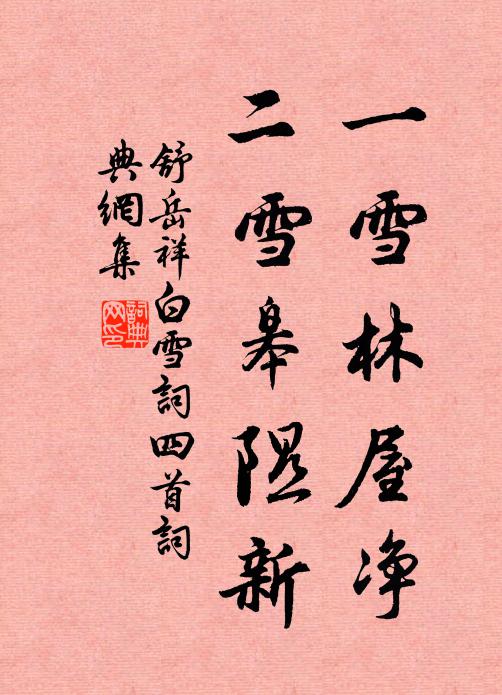 一雪林屋净
二雪皋隰新
舒岳祥白雪詞四首詞
典網集
詞典
网印